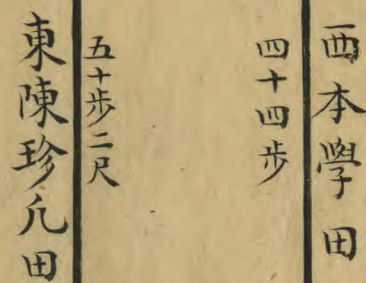 西本學田
四十四步
五十步二尺
東陳珍凣田